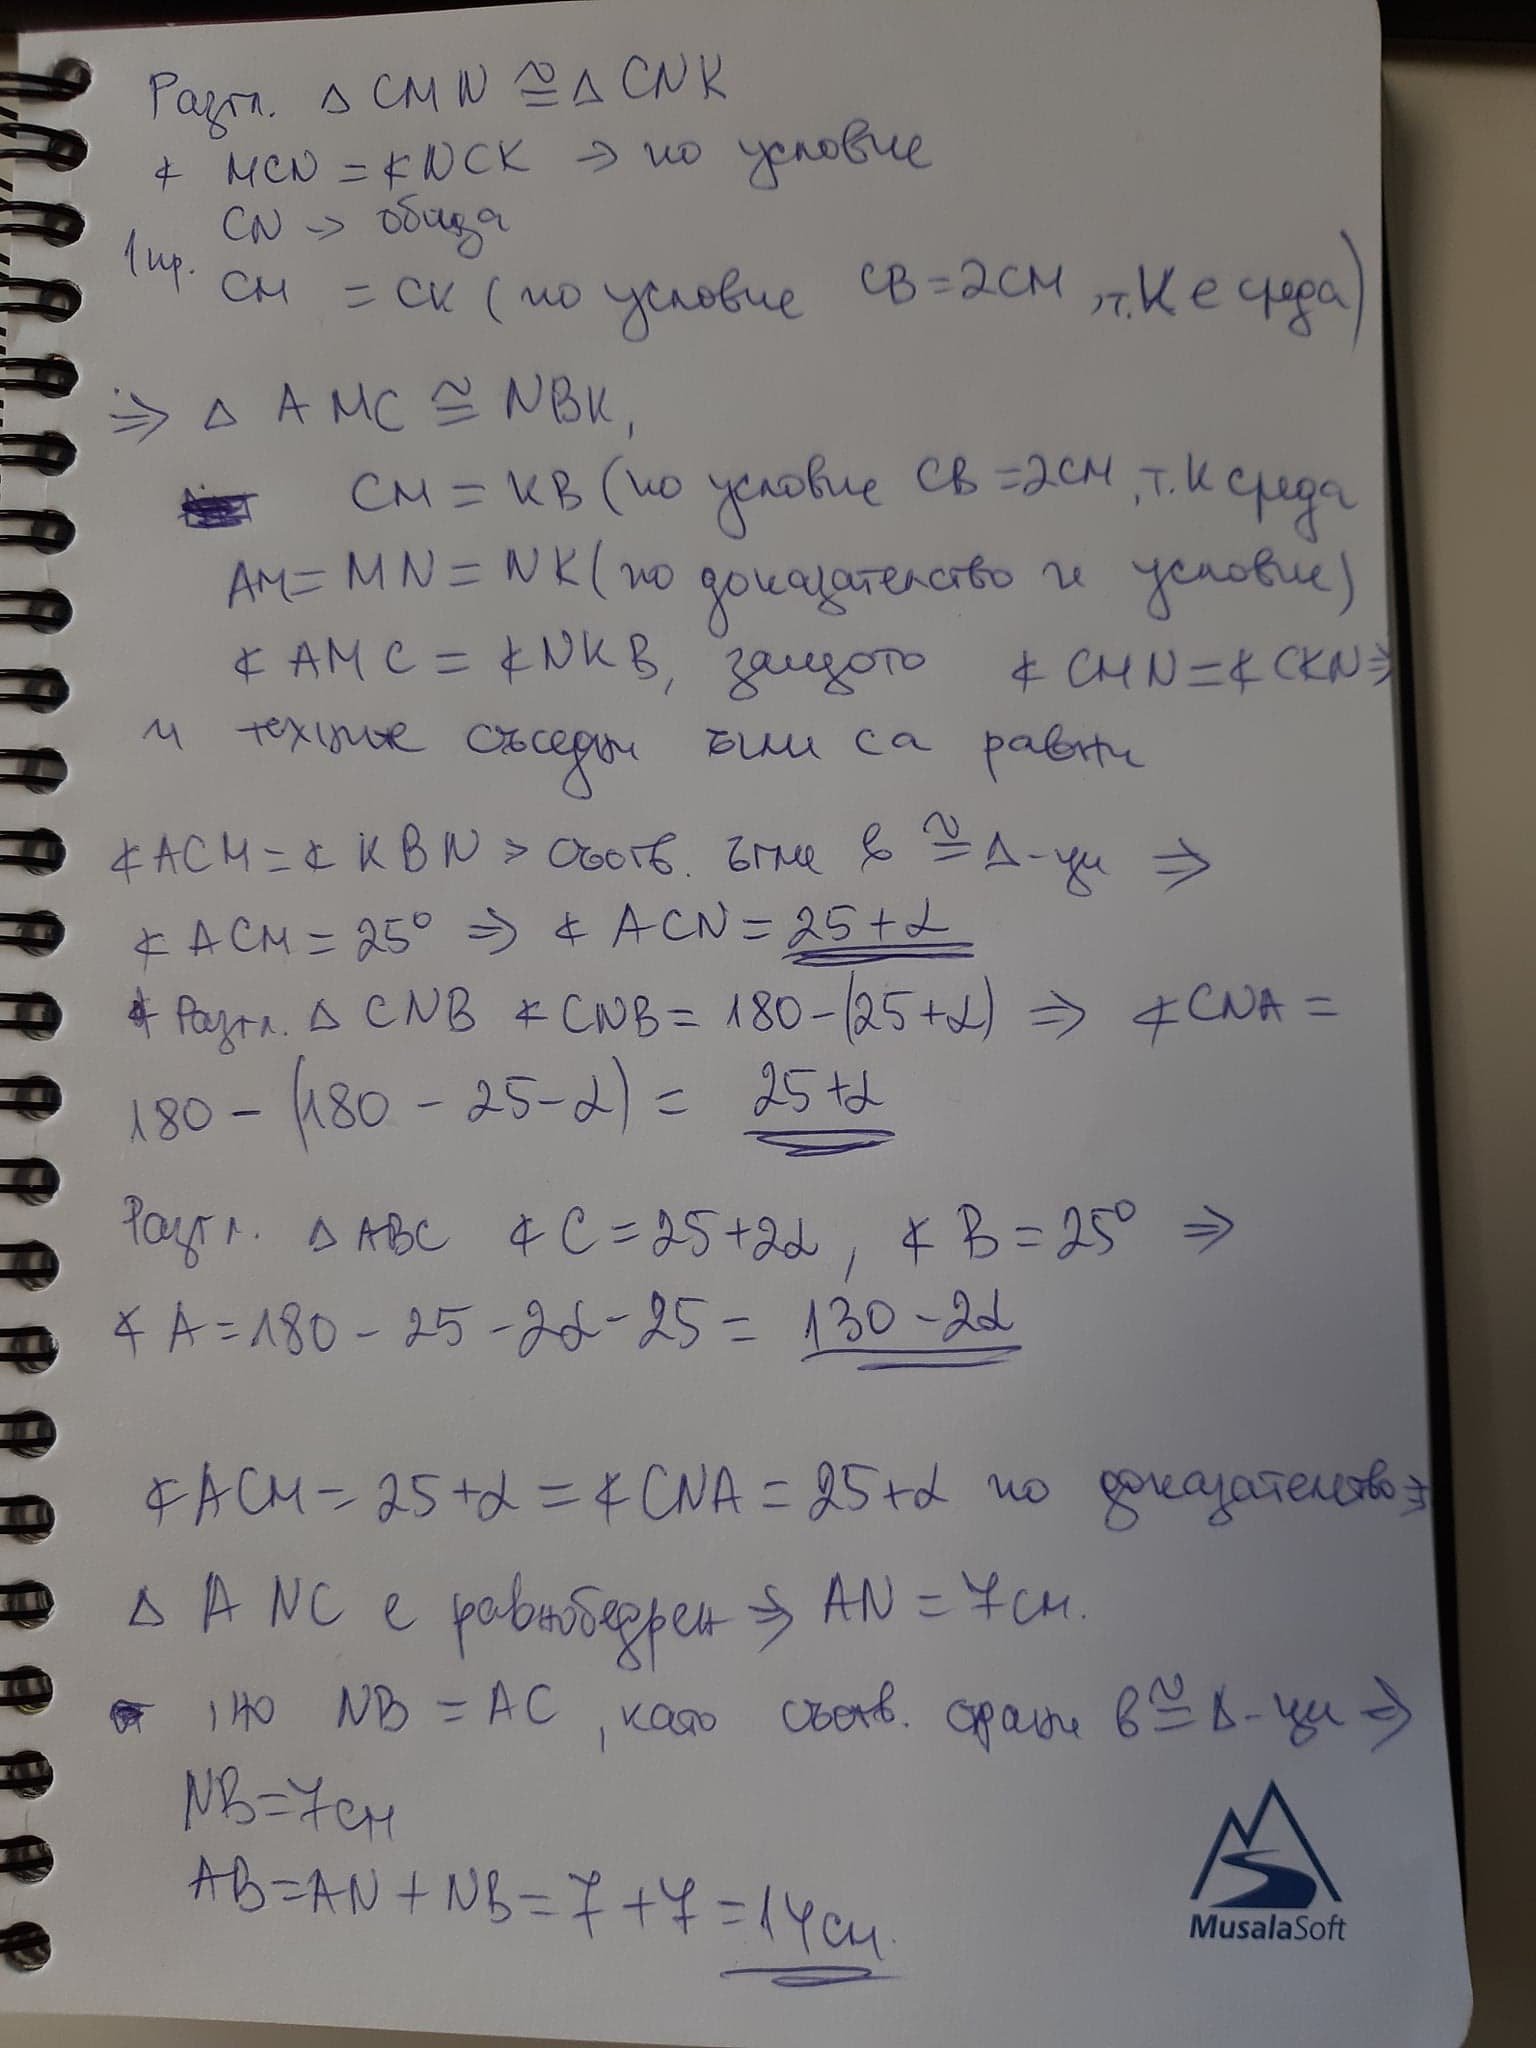 Разгл. △ CMN ≅ △ CNK
∢ MCN = ∢ NCK ⇒ по условие
CN → обща
1 пр.
CM = CK (по условие CB = 2CM, т. K е среда)
⇒ △ AMC ≅ NBK,
CM = KB (по условие CB = 2CM, т. K среда
AM = MN = NK (по доказателство и условие)
∢ AMC = ∢ NKB, защото ∢ CMN = ∢ CKN ⇒
и техните съседни ъгли са равни
∢ ACM = ∢ KBN > съотв. ъгли в ≅ △-ци ⇒
∢ ACM = 25° ⇒ ∢ ACN = 25 + α
∢ Разгл. △ CNB ∢ CNB = 180 - (25 + α) ⇒ ∢ CNA =
180 - (180 - 25 - α) = 25 + α
Разгл. △ ABC ∢ C = 25 + 2α, ∢ B = 25° ⇒
∢ A = 180 - 25 - 2α - 25 = 130 - 2α
∢ ACM = 25 + α = ∢ CNA = 25 + α по доказателство ⇒
△ ANC е равнобедрен ⇒ AN = 7 см.
, но NB = AC, като съотв. страни в ≅ △-ци ⇒
NB = 7 см
AB = AN + NB = 7 + 7 = 14 см.
MusalaSoft